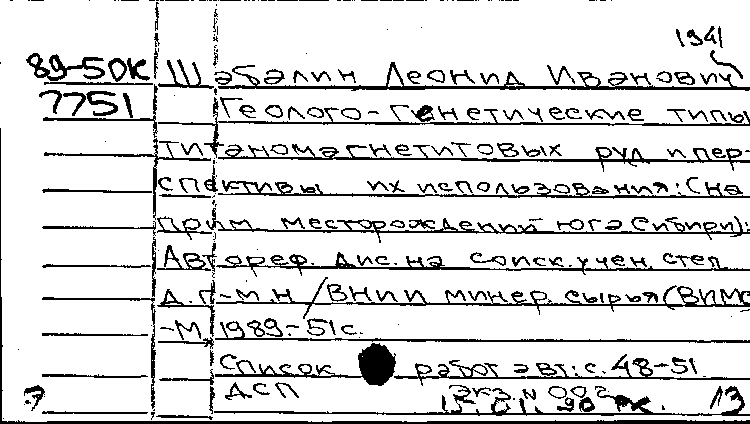 1941
89-5ДК Шабалин Леонид Иванович
7751 Геолого-генетические типы
титаномагнетитовых руд и пер-
спективы их использования: (на
прим. месторождений юга Сибири):
Автореф. дис. на соиск. учен. степ
д.г-м.н /ВНИИ минер. сырья (ВИМС
-М, 1989.-51 с.
Список работ авт.: с. 48-51
ДСП Экз. N 002
15.01.90 13